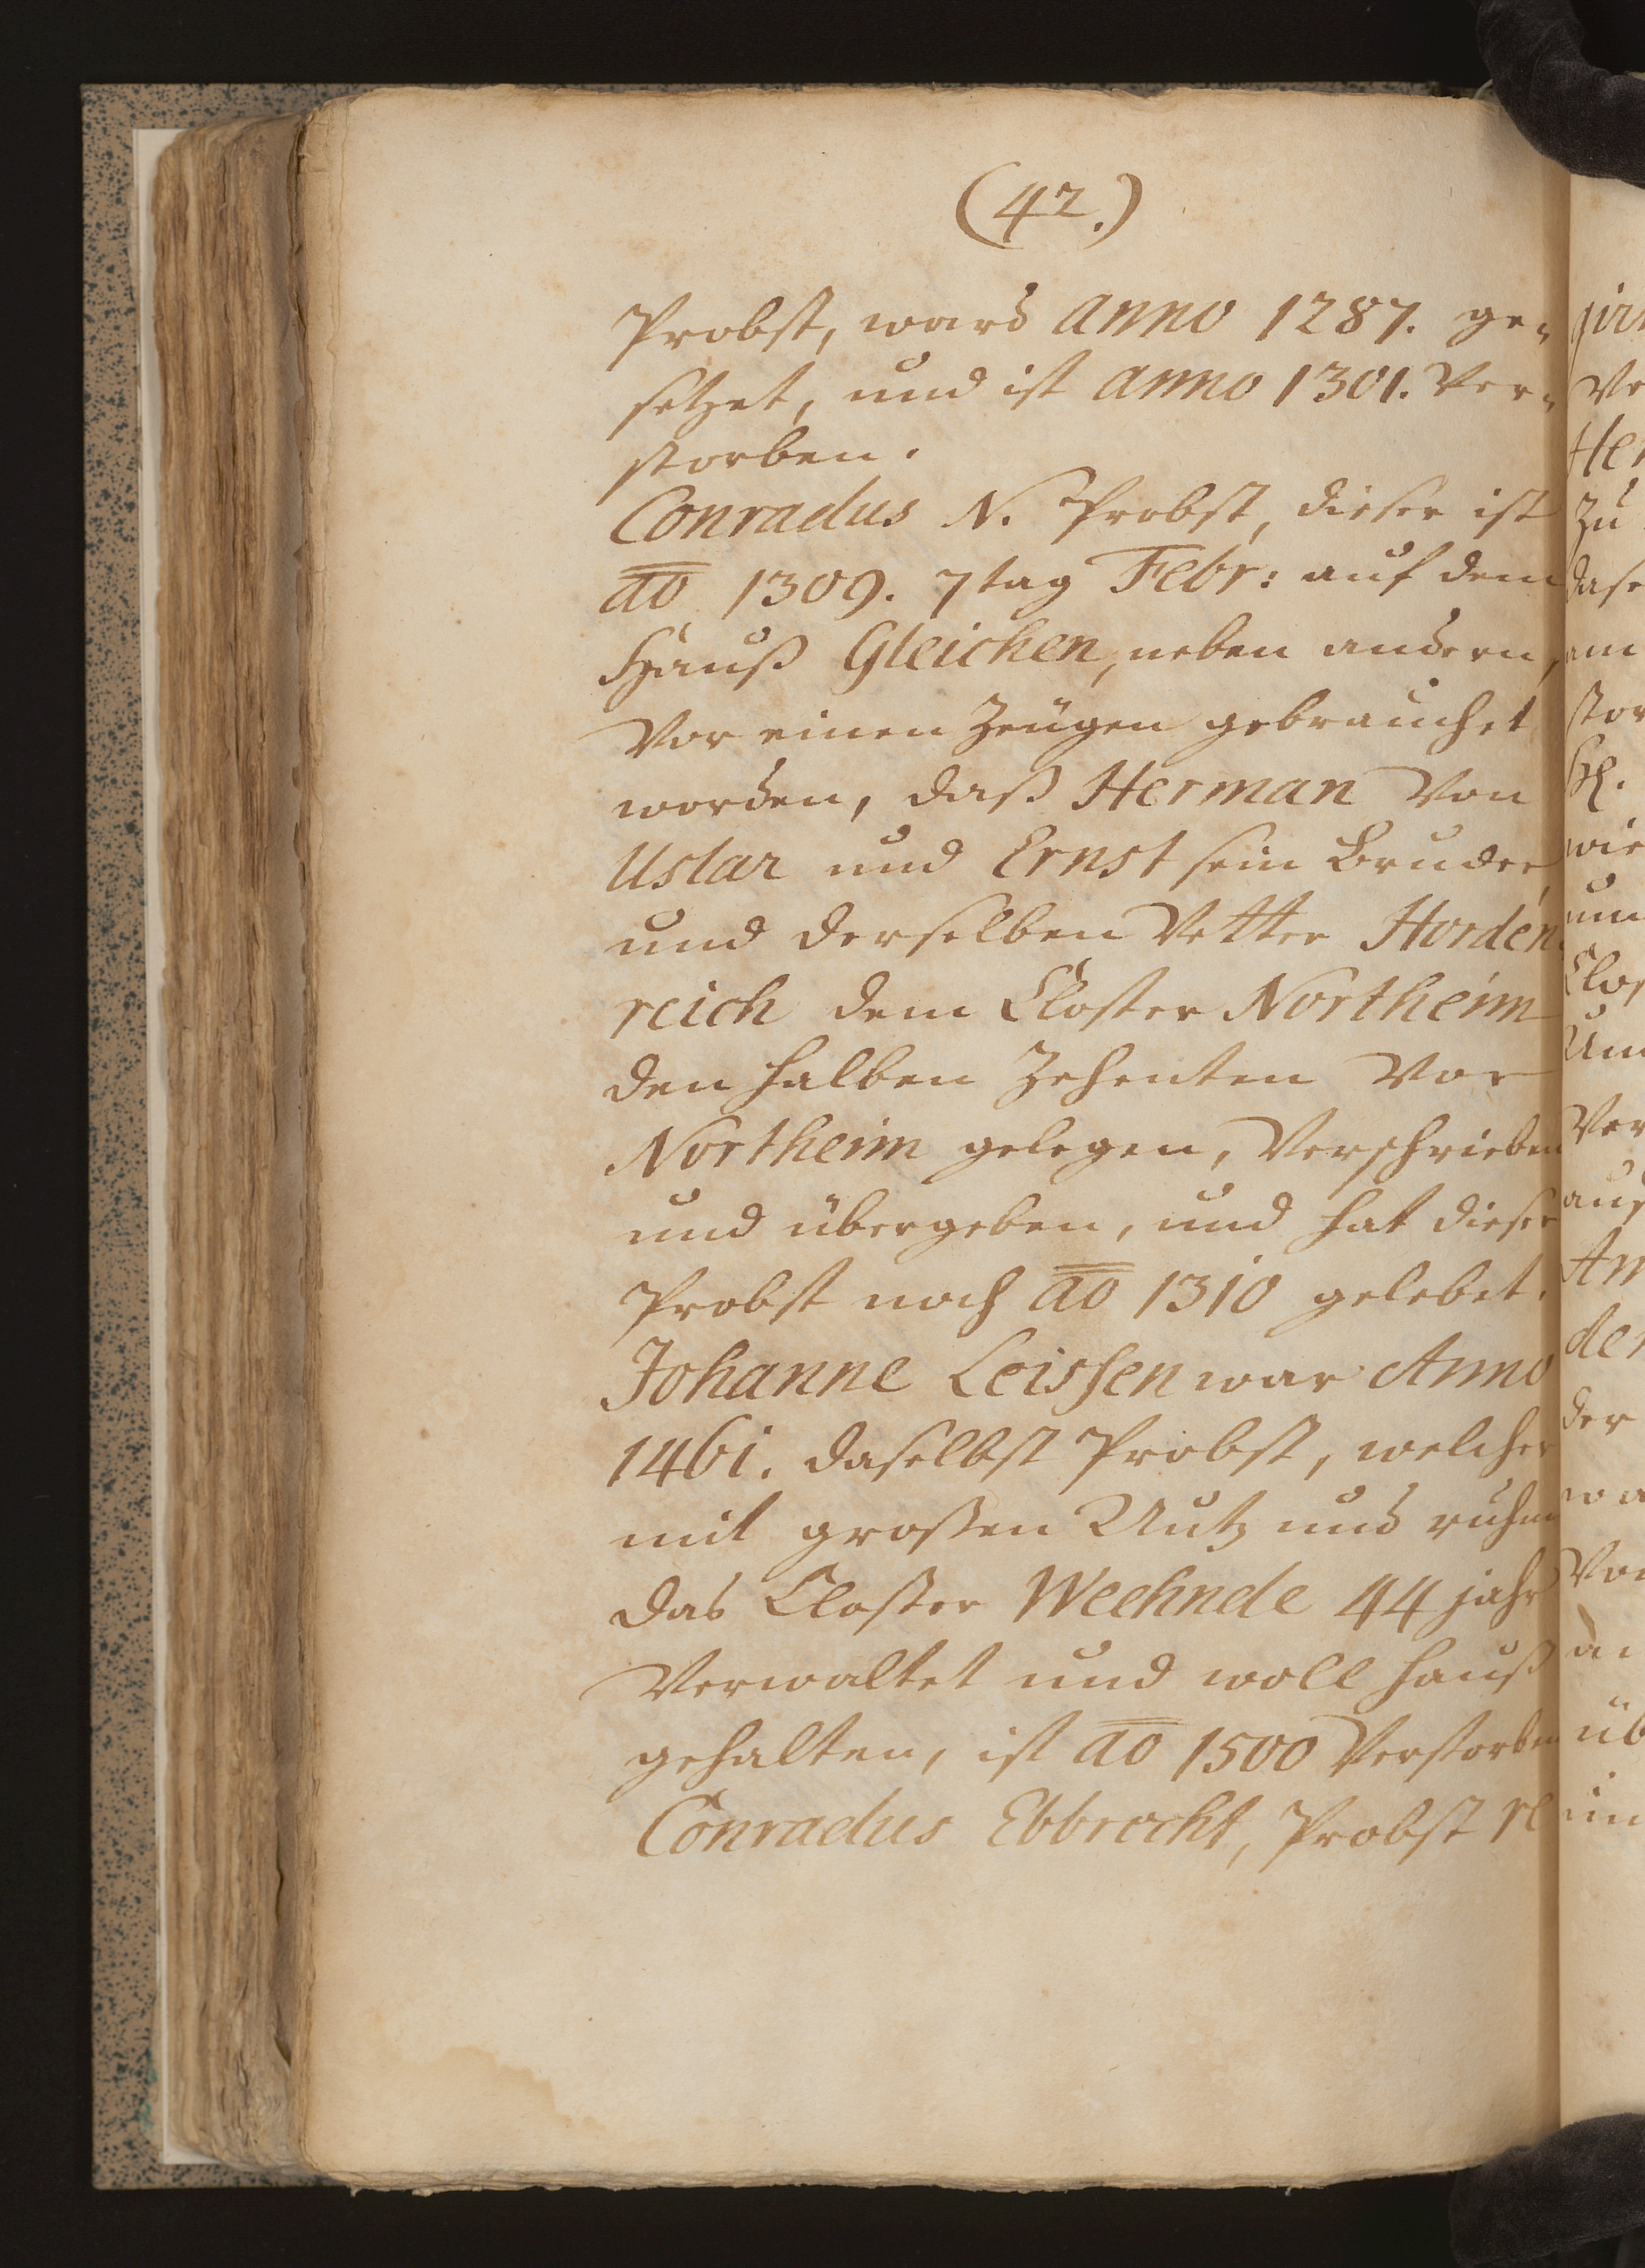 (42.)
Probst, ward anno 1287. ge-
setzet, und ist anno 1301. Ver-
storben.
Conradus N. Probst, dieser ist
ao 1309. 7tag Febr: auf dem
Hauß Gleichen, neben andern,
Vor einen Zeugen gebrauchet
worden, daß Herman Von
Uslar und Ernst sein Bruder,
und derselben Vetter Horden
reich dem Closter Northeim
den halben Zehenten Vor
Northeim gelegen, Verschrieben
und übergeben, und hat dieser
Probst noch ao 1310 gelebet.
Johanne Leissen war Anno
1461. daselbst Probst, welcher
mit großen Nutz und ruhm
das Closter Weehnde 44 jahr
Verwaltet und woll hauß
gehalten, ist ao 1500 Verstorben
Conradus Ebbrecht, Probst
Ve
Her
Zu
dase
am
stor
wie
um
Clos
Um
Ver
aus
An
der
der
wa
Vor
üb